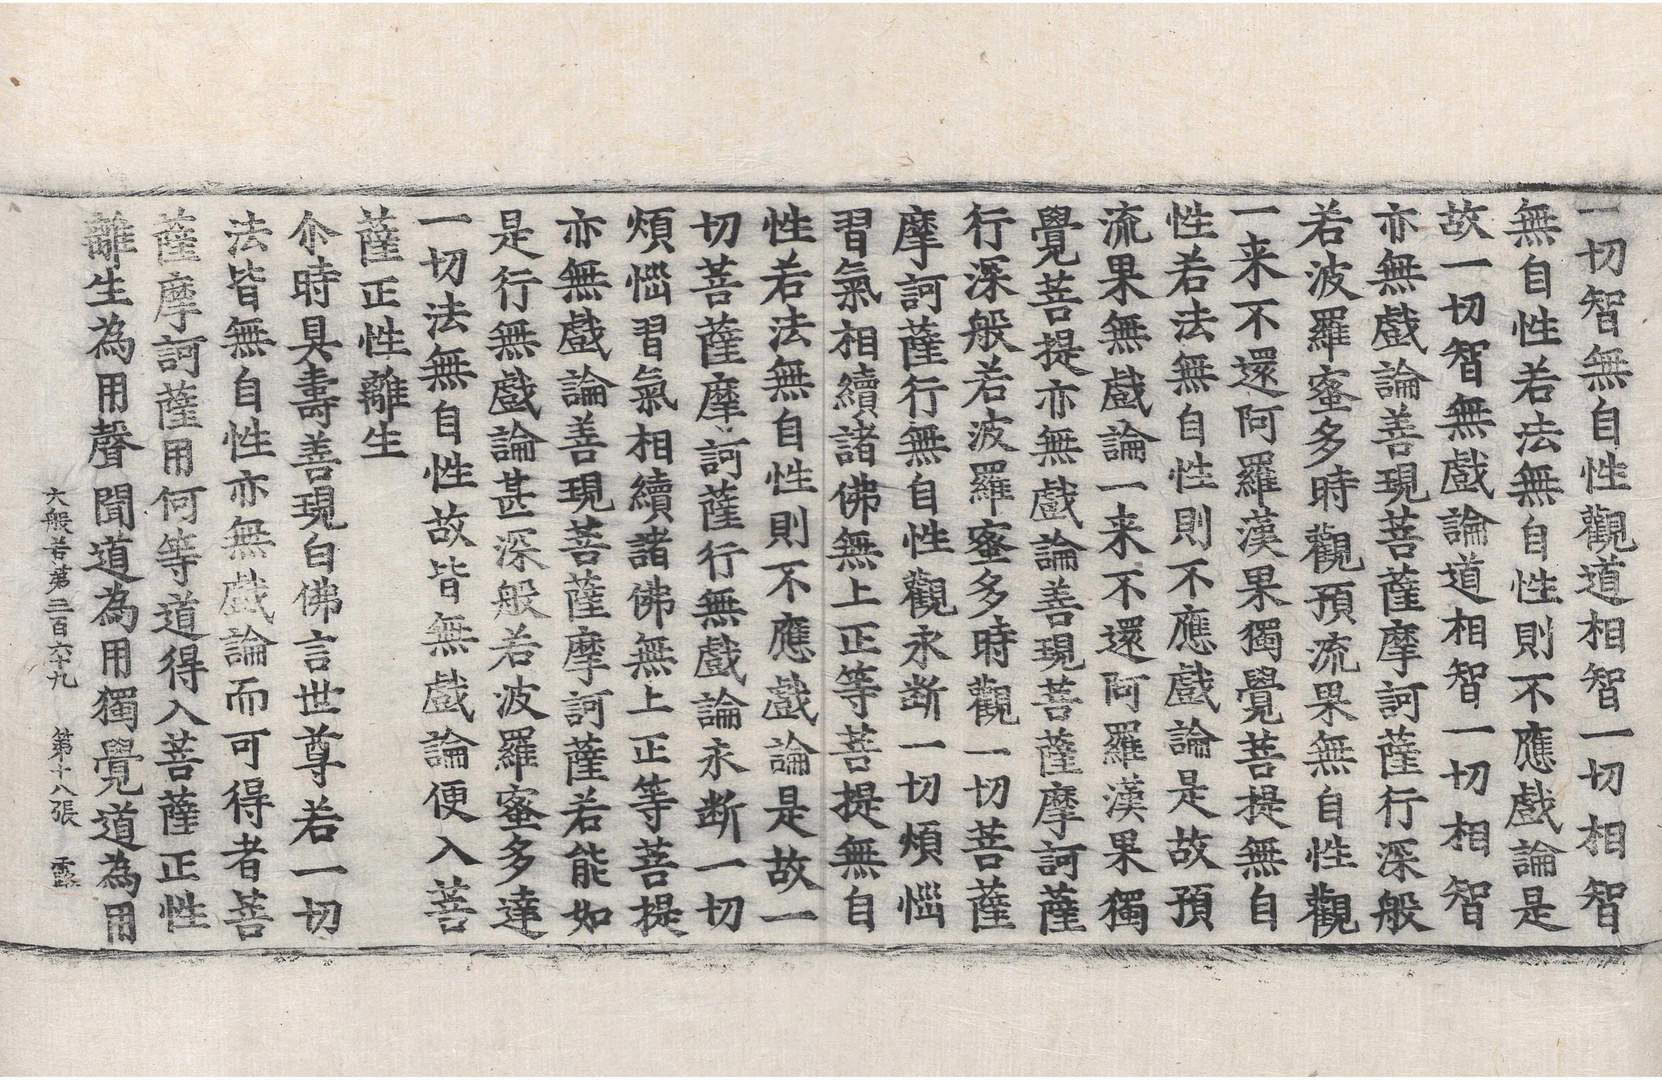 一切智無自性觀道相智一切相智
無自性若法無自性則不應戲論是
故一切智無戲論道相智一切相智
亦無戲論善現菩薩摩訶薩行深般
若波羅蜜多時觀預流果無自性觀
一来不還阿羅漢果獨覺菩提無自
性若法無自性則不應戲論是故預
流果無戲論一来不還阿羅漢果獨
覺菩提亦無戲論善現菩薩摩訶薩
行深般若波羅蜜多時觀一切菩薩
摩訶薩行無自性觀永斷一切煩惱
習氣相續諸佛無上正等菩提無自
性若法無自性則不應戲論是故一
切菩薩摩訶薩行無戲論永断一切
煩惱習氣相續諸佛無上正等菩提
亦無戲論善現菩薩摩訶薩若能如
是行無戲論甚深般若波羅蜜多達
一切法無自性故皆無戲論便入菩
薩正性離生
尒時具壽善現白佛言世尊若一切
法皆無自性亦無戲論而可得者菩
薩摩訶薩用何等道得入菩薩正性
離生為用聲聞道為用獨覺道為用
大般若第三百六十九 第十八張 霜